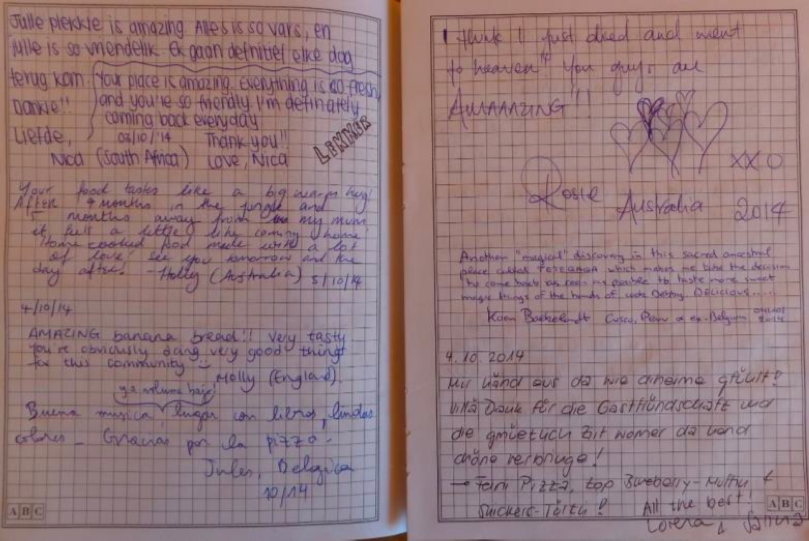 Julle plekkie is amazing Alles is so vars, en
julle is so vriendelik Ek gaan definitief elke dag
terug kom.
Dankie!!
Liefde,
Nica (South Africa)
Your place is amazing. Everything is so fresh
and you're so friendly. I'm definately
coming back everyday
03/10/'14 Thank you!!
Love, Nica
Your food tastes like a big warm hug!
After 4 months in the jungle and
months away from my mum
it felt a little like coming home!
Home cooked food made with a lot
of love! See you tomorrow and the
day after. -Holly (Australia) 5/10/14
4/10/14
AMAZING banana bread!! Very tasty
You're obviously doing very good things
for this community
Holly (England).
Buena musica, lugar con libros, lindos
colores - Gracias por la pizza -
Jules, Belgica
10/14
I think I just died and went
to heaven" You guys are
AMAAAZING!!
XXO
Rosie Australia 2014
Another "magical" discovery in this sacred ancestral
place called which makes me take the decision
to come back as soon as possible to taste more sweet
magic things of the hands of DELICIOUS.....
Cusco, Peru ex-Belgium
2014
4.10.2014
Mir händ eus da wie diheime gfühlt!
Villä Dank für die Gastfründschaft und
die gmüetlich Ziit womer da händ
chöne verbringe!
→ Feini Pizza, top Blueberry-Muffin &
Snickers-Törtli! All the best!
Lorena &
ABC
ABC